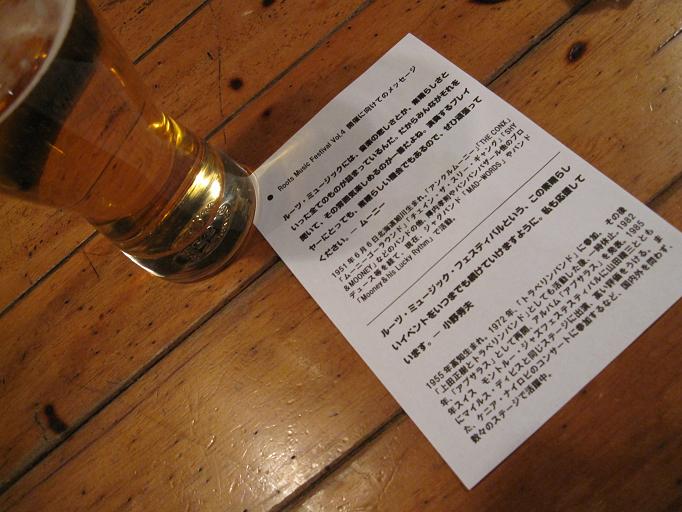 ● Roots Music Festival Vol.4 開催に向けてのメッセージ
ルーツ・ミュージックには、音楽の楽しさとか、素晴らしさと
いった全てのものが詰まっているんだ。だからみんながそれを
聞いて、その雰囲気楽しめるのが一番だよね。演奏するプレイ
ヤーにとっても、素晴らしい機会でもあるので、ぜひ頑張って
ください。 ― ムーニー
1951年6月6日北海道旭川生まれ「アンクルムーニー」「THE CONX」
「ムーニーゴーラウンド」「チェインザ・スリーギャング」「SHY
&MOONEY」などのバンドの他、陣内孝則、バンバンバザール他のプロ
デュース等を経て、現在、ジャグバンド「MAD-WORDS」やバンド
「Mooney&his Lucky Rythm」で活動。
ルーツ・ミュージック・フェスティバルという、この素晴らし
いイベントをいつまでも続けていけますように。私も応援して
います。― 小野
1955年高知生まれ、1972年、「トラペリンバンド」に参加。その後
「上田正樹とトラペリンバンド」としても活動した後、一時休止。1982
年、「アプサラス」として再開、アルバム「アプサラス」を発表。1985
年スイス モントルー・ジャズフェスティバルに山田晴三ととも
にマイルス・デイビスと同じステージに出演、高い評価をうける。ま
た、ケニア・ナイロビのコンサートに参加するなど、国内外を問わず、
数々のステージで活躍中。